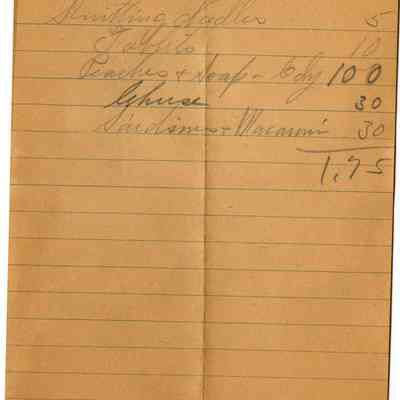 Knitting Needles 5
Tablets 10
Peaches + Soap - Edy 100
Chuse 30
Sardines + Macaroni 30
1,75